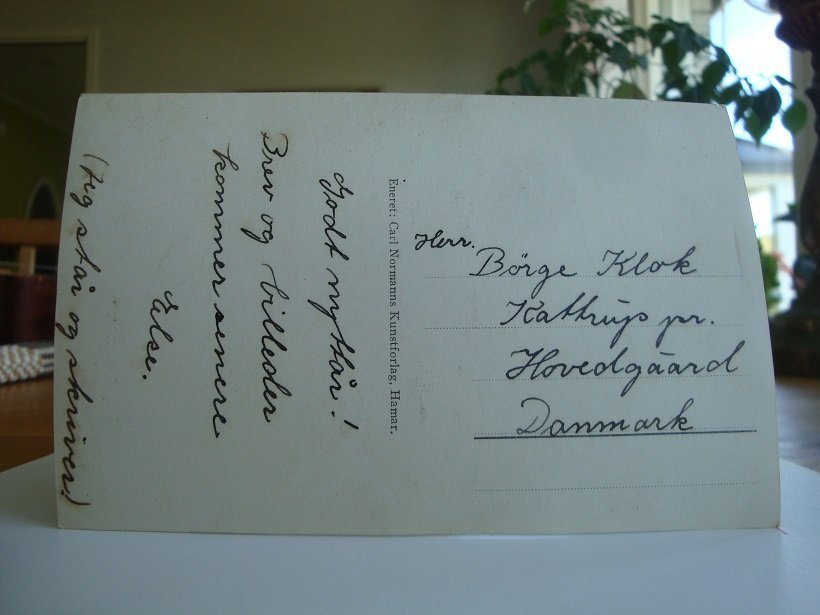 Godt nyttår!
Brev og billeder
kommer senere
Else.
(Jeg står og skriver!)
Eneret: Carl Normanns Kunstforlag, Hamar.
Herr.
Börge Klok
Kattrup pr.
Hovedgåard
Danmark